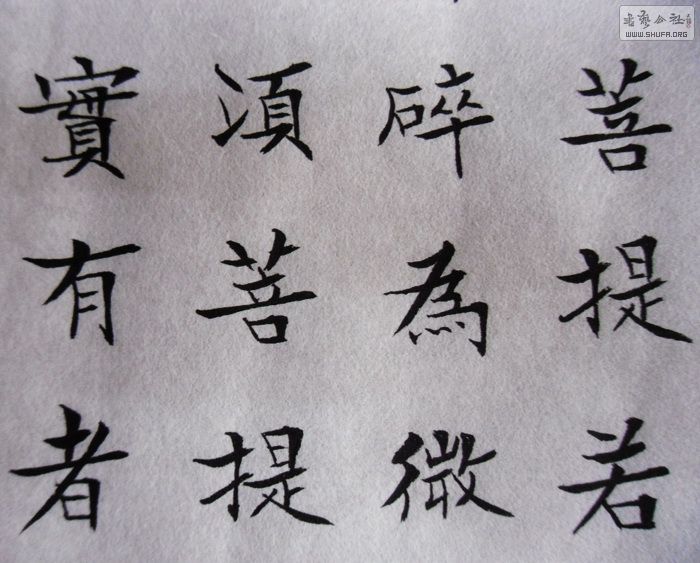 菩提若
碎為微
湏菩提
實有者
書藝公社
WWW.SHUFA.ORG